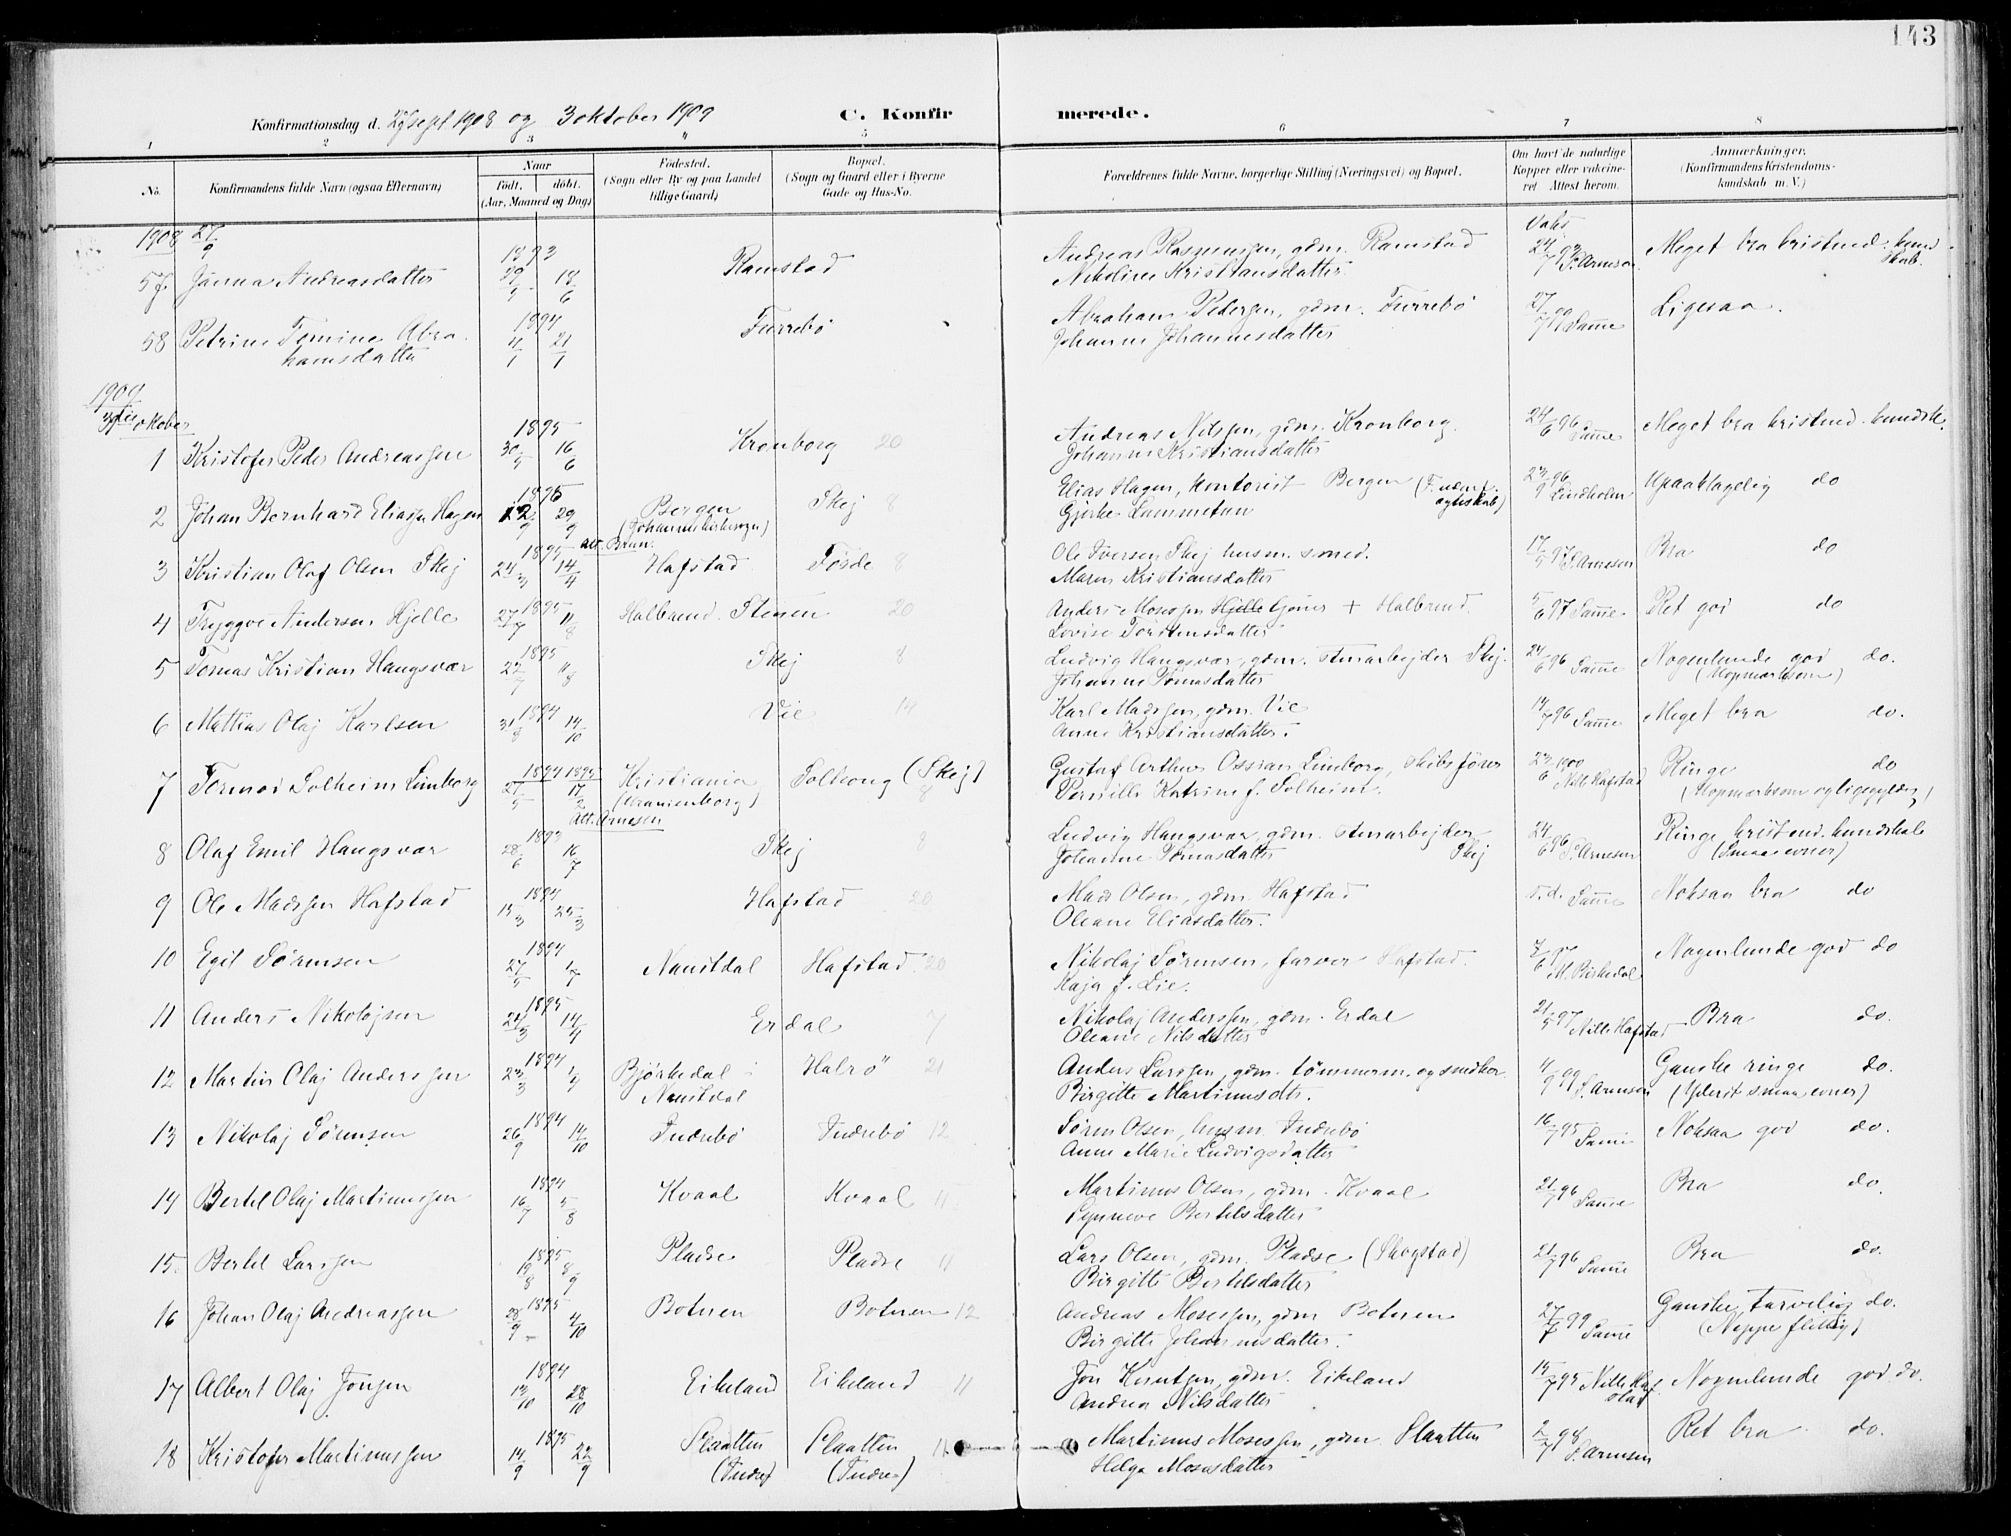 143
Konfirmationsdag d. 27 sept 1908 og 3 oktober 1909 C. Konfirmerede.
1 2 3 4 5 6 7 8
No. Konfirmandens fulde Navn (ogsaa Efternavn) Naar født. døbt. (Aar, Maaned og Dag) Fødested. (Sogn eller By og paa Landet tillige Gaard) Bopæl. (Sogn og Gaard eller i Byerne Gade og Hus-No. Forældrenes fulde Navne, borgerlige Stilling (Næringsvei) og Bopæl. Om havt de naturlige Kopper eller vaccineret Attest herom. Anmærkninger. (Konfirmandens Kristendomskundskab m. V.)
1908 27/9
57. Janna Andreasdatter 1893 29/5 18/6 Ramstad Andreas Rasmussen, gdm. Ramstad Vaks 24/7 93 S. Arnesen Meget bra kristend. kundskab.
Nikoline Kristiansdatter
58 Petrine Tomine Abrahamsdatter 1894 4/1 21/1 Furrebø Abraham Pedersen, gdm. Furrebø 27/7 99 Samme Ligesaa.
Johanne Johannesdatter
1909 3die oktober
1 Kristofer Peder Andreassen 1895 30/5 16/6 Kronborg 20 Andreas Nilssen, gdm. Kronborg 24/6 96 Samme Meget bra kristend. kundsk.
Johanne Kristiansdatter
2 Johan Bernhard Eliassen Hagen 1895 12/9 29/9 Bergen (Johanneskirkesogn) Skej 8 Elias Hagen, kontorist Bergen (F. uden egteskab) 23/9 96 Lindholm Upaaklagelig do
Gjerke Lammetun
att. Brun.
3 Kristian Olaf Olsen Skej 1895 24/3 14/4 Hafstad Førde 8 Ole Iversen Skej husm. smed. 17/5 97 S. Arnesen Bra do
Maren Kristiansdatter
4 Tryggve Andersen Hjelle 1895 27/7 11/8 Halbrend Stenen 20 Anders Mosessen Hjelle + Halbrend 5/6 97 Samme Ret god do
Lovise Torstensdatter
5 Tomas Kristian Hangsvær 1895 22/7 11/8 Skej 8 Ludvig Hangsvær, gdm. stenarbejder Skej. 24/6 96 Samme Nogenlunde god do.
Johanne Tomasdatter (Uopmærksom)
6 Mattias Olaj Karlsen 1894 31/8 14/10 Vie 14 Karl Madssen, gdm. Vie 14/7 96 Samme Meget bra do.
Anne Kristiansdatter.
7 Tormod Solheim Limborg 1894 27/5 1895 17/2 Kristiania (Uranienborg) Solhoug (Skej) 8 Gustaf Arthur Ossian Limborg, skibsfører 23/6 1900 Nille Hafstad Ringe do
Pernille Katrine f. Solheim. (Uopmærksom og ligegyldig)
Att. Arnesen
8 Olaf Emil Hangsvær 1893 28/6 16/7 Skej 8 Ludvig Hangsvær, gdm. stenarbejder Skej 24/6 96 S. Arnesen Ringe kristend. kundskab
Johanne Tomasdatter (Smaa evner)
9 Ole Madssen Hafstad 1894 15/3 25/3 Hafstad 20 Mads Olsen, gdm. Hafstad s. d. Samme Noksaa bra do
Oleane Eliasdatter.
10 Egil Sørensen 1894 27/5 1/7 Naustdal Hafstad 20 Nikolaj Sørensen, farver Hafstad. 7/6 97 M. Birkedal Nogenlunde god do
Kaja f. Lie.
11 Anders Nikolajsen 1895 24/3 14/4 Erdal 7 Nikolaj Anderssen, gdm. Erdal 21/5 97 Nille Hafstad Bra do.
Oleane Nilsdatter
12 Martin Olaj Anderssen 1894 23/3 1/4 Bjørkedal i Naustdal Halrø 21 Anders Larssen, gdm. tømmerm. og snidker 4/9 99 S. Arnesen Ganske ringe do.
Birgitte Martinusdtr. (Yderst smaa evner)
13 Nikolaj Sørensen 1894 26/9 14/10 Indrebø Indrebø 12 Søren Olsen, husm. Indrebø 16/7 95 Samme Noksaa god do.
Anne Marie Ludvigsdatter
14 Bertel Olaj Martinussen 1894 16/7 5/8 Kvaal Kvaal 11 Martinus Olsen, gdm. Kvaal 21/7 96 Samme Bra do.
Synneve Bertelsdatter
15. Bertel Larssen 1895 19/8 8/9 Pladse Pladse 11 Lars Olsen, gdm. Pladse (Skogstad) 21/7 96 Samme Bra do.
Birgitte Bertelsdatter
16 Johan Olaj Andreassen 1895 28/9 4/10 Botnen Botnen 12 Andreas Mosessen, gdm Botnen 27/7 99 Samme Ganske tarvelig do.
Birgitte Johannesdatter. (Neppe flittig)
17 Albert Olaj Jonsen 1894 13/10 28/10 Eikeland Eikeland 11 Jon Knutsen, gdm. Eikeland 15/7 95 Nille Hafstad Nogenlunde god do.
Andrea Nilsdatter
18 Kristofer Martinussen 1895 14/9 22/9 Slaatten (Indre) Slaatten (Indre) 11 Martinus Mosessen, gdm. Slaatten 2/7 98 S. Arnesen Ret bra do.
Helga Mosesdatter